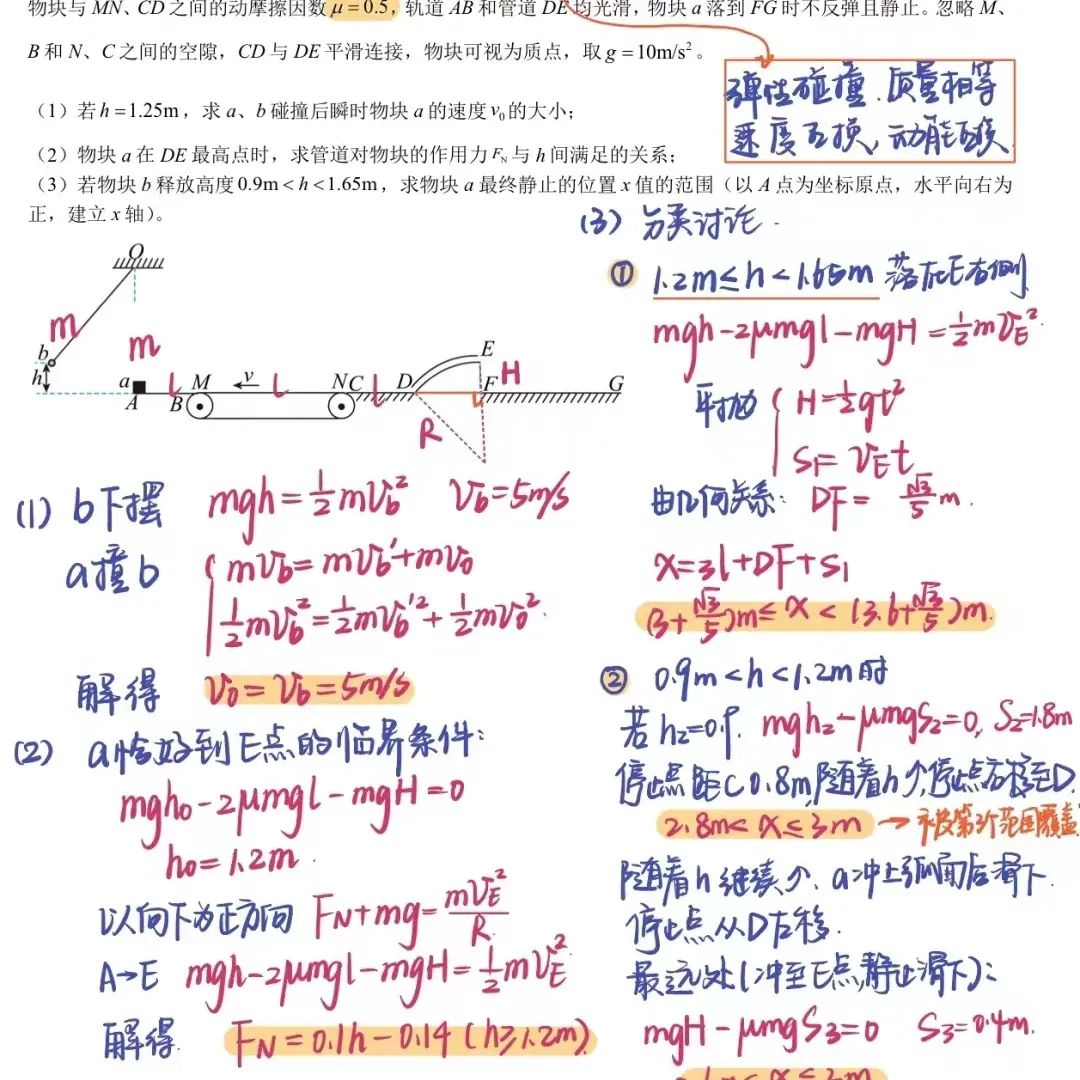 物块与 MN、CD 之间的动摩擦因数 μ = 0.5，轨道 AB 和管道 DE 均光滑，物块 a 落到 FG 时不反弹且静止。忽略 M、
B 和 N、C 之间的空隙，CD 与 DE 平滑连接，物块可视为质点，取 g = 10m/s²。
弹性碰撞.质量相等
速度互换,动能互换
（1）若 h = 1.25m，求 a、b 碰撞后瞬时物块 a 的速度 v₀ 的大小；
（2）物块 a 在 DE 最高点时，求管道对物块的作用力 F_N 与 h 间满足的关系；
（3）若物块 b 释放高度 0.9m < h < 1.65m，求物块 a 最终静止的位置 x 值的范围（以 A 点为坐标原点，水平向右为
正，建立 x 轴）。
O
m
b
h
m
a
A
l
B
M
v
l
N
C
l
D
E
H
F
G
R
(1) b下摆 mgh = ½mv_b² v_b = 5m/s
a撞b
mv_b = mv_b' + mv₀
½mv_b² = ½mv_b'² + ½mv₀².
解得 v₀ = v_b = 5m/s
(2) a恰好到E点的临界条件:
mgh₀ - 2μmgl - mgH = 0
h₀ = 1.2m.
以向下为正方向 F_N + mg = mv_E²/R
A→E mgh - 2μmgl - mgH = ½mv_E²
解得. F_N = 0.1h - 0.14 (h≥1.2m)
(3) 分类讨论.
① 1.2m ≤ h < 1.65m 落在E右侧
mgh - 2μmgl - mgH = ½mv_E².
平抛
H = ½gt²
S₁ = v_E t
由几何关系: DF = √3/5 m.
x = 3l + DF + S₁
(3+√3/5)m ≤ x < (3.6+√3/5)m.
② 0.9m < h < 1.2m时
若h₂=0.9. mgh₂ - μmgS₂ = 0, S₂=1.8m
停止点距C 0.8m,随着h↗,停止点右移至D.
2.8m < x ≤ 3m
随着h继续↗、a冲上弧面后滑下.
停止点从D左移.
最远处(冲至E点,静止滑下):
mgH - μmgS₃ = 0 S₃ = 0.4m.